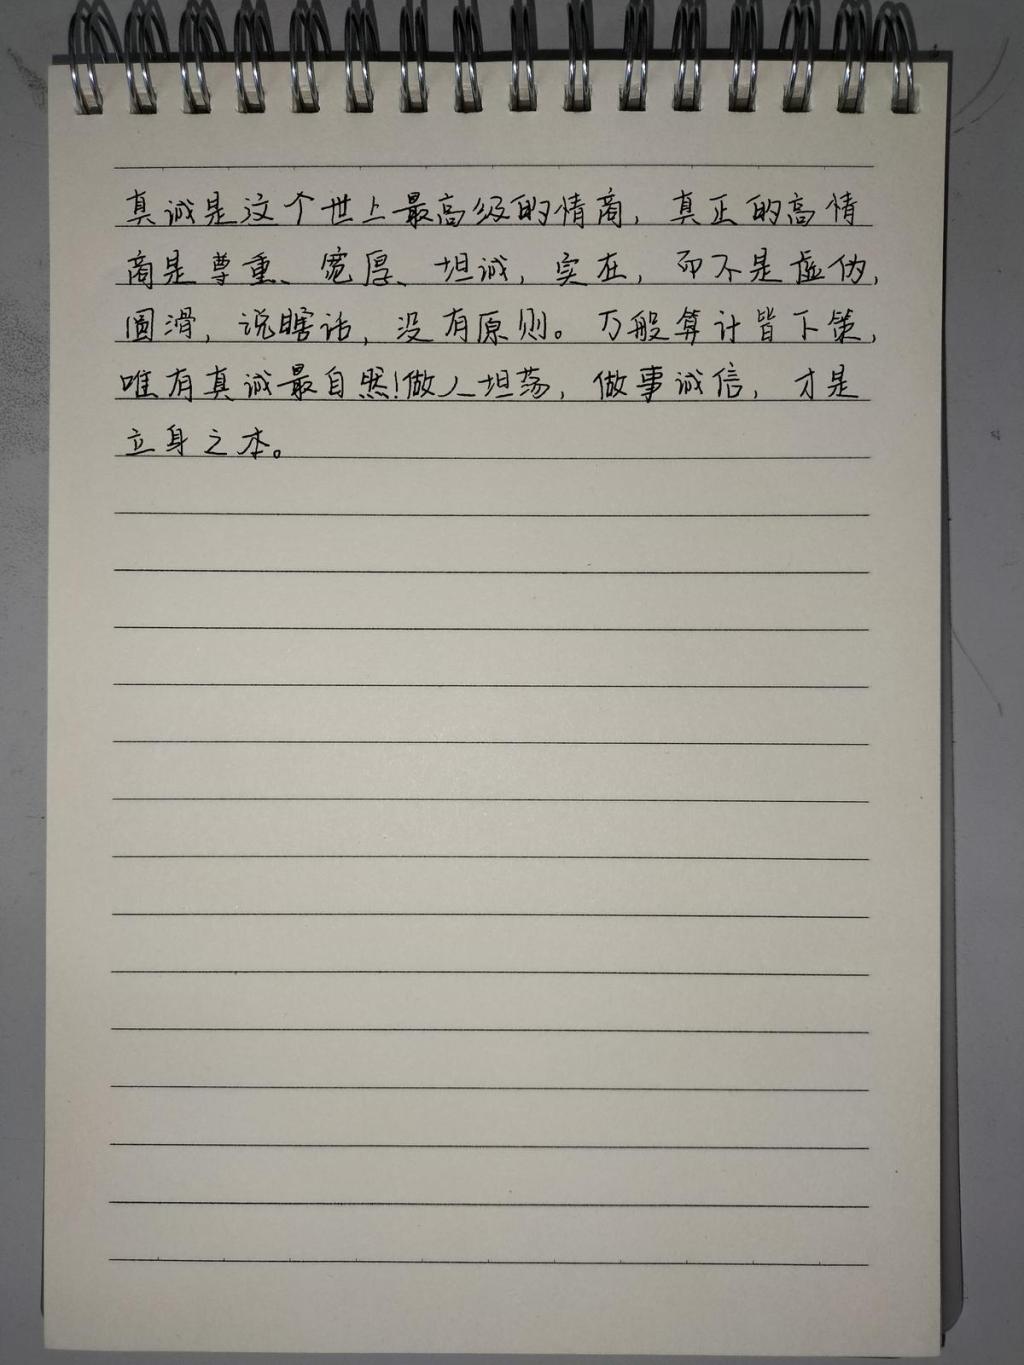 真诚是这个世上最高级的情商，真正的高情
商是尊重、宽厚、坦诚，实在，而不是虚伪，
圆滑，说瞎话，没有原则。万般算计皆下策，
唯有真诚最自然！做人坦荡，做事诚信，才是
立身之本。